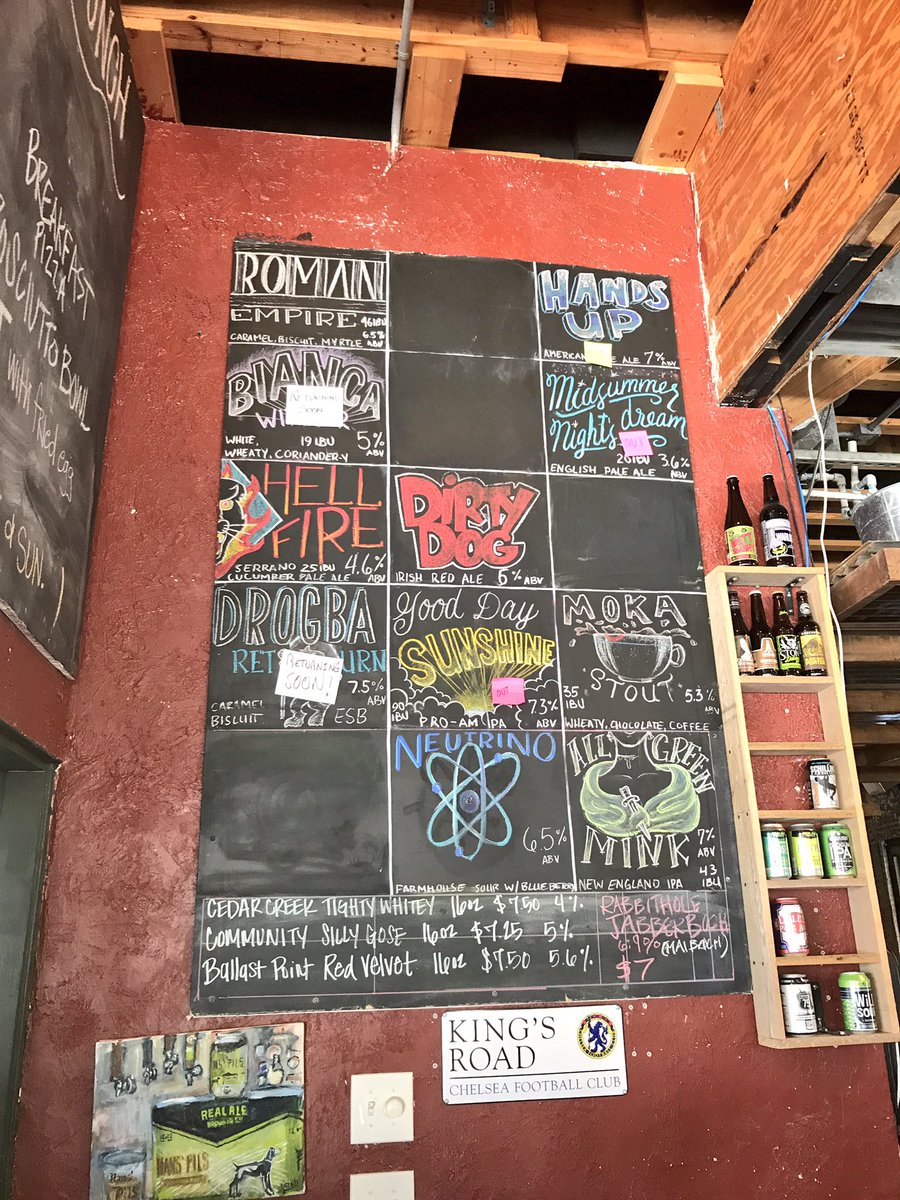 UNCH
BREAKFAST
PIZZA
PROSCIUTTO BOWL
with fried egg
d SUN.
ROMAN
EMPIRE 46IBU
CARAMEL, BISCUIT, MYRTLE 6.5% ABV
HANDS
UP
AMERICAN ALE 7% ABV
BIANCA
RETURNING
SOON
WHITE, 19 IBU 5%
WHEATY, CORIANDER-Y ABV
Midsummer
Nights dream
OUT
20IBU 3.6%
ENGLISH PALE ALE ABV
HELL
FIRE
SERRANO 25 IBU 4.6%
CUCUMBER PALE ALE ABV
DIRTY
DOG
IRISH RED ALE 6% ABV
DROGBA
RET URN
RETURNING
SOON!
7.5%
CARAMEL ABV
BISCUIT ESB
Good Day
SUNSHINE
OUT
90 IBU 7.3%
PRO-AM IPA ABV
MOKA
STOUT
35 IBU 5.3% ABV
WHEATY, CHOCOLATE, COFFEE
NEUTRINO
6.5%
ABV
FARMHOUSE SOUR W/ BLUEBERRY
ALL GREEN
MINK
7%
ABV
43
IBU
NEW ENGLAND IPA
CEDAR CREEK TIGHTY WHITEY 16oz $7.50 4%
COMMUNITY SILLY GOSE 16oz $7.25 5%
BALLAST POINT RED VELVET 16oz $7.50 5.6%
RABBITHOLE
JABBERBOCH
6.9% (MAIBOCH)
$7
KING'S
ROAD
CHELSEA FOOTBALL CLUB
REAL ALE
BREWING CO
HANS' PILS
Hans'
Pils
IPA